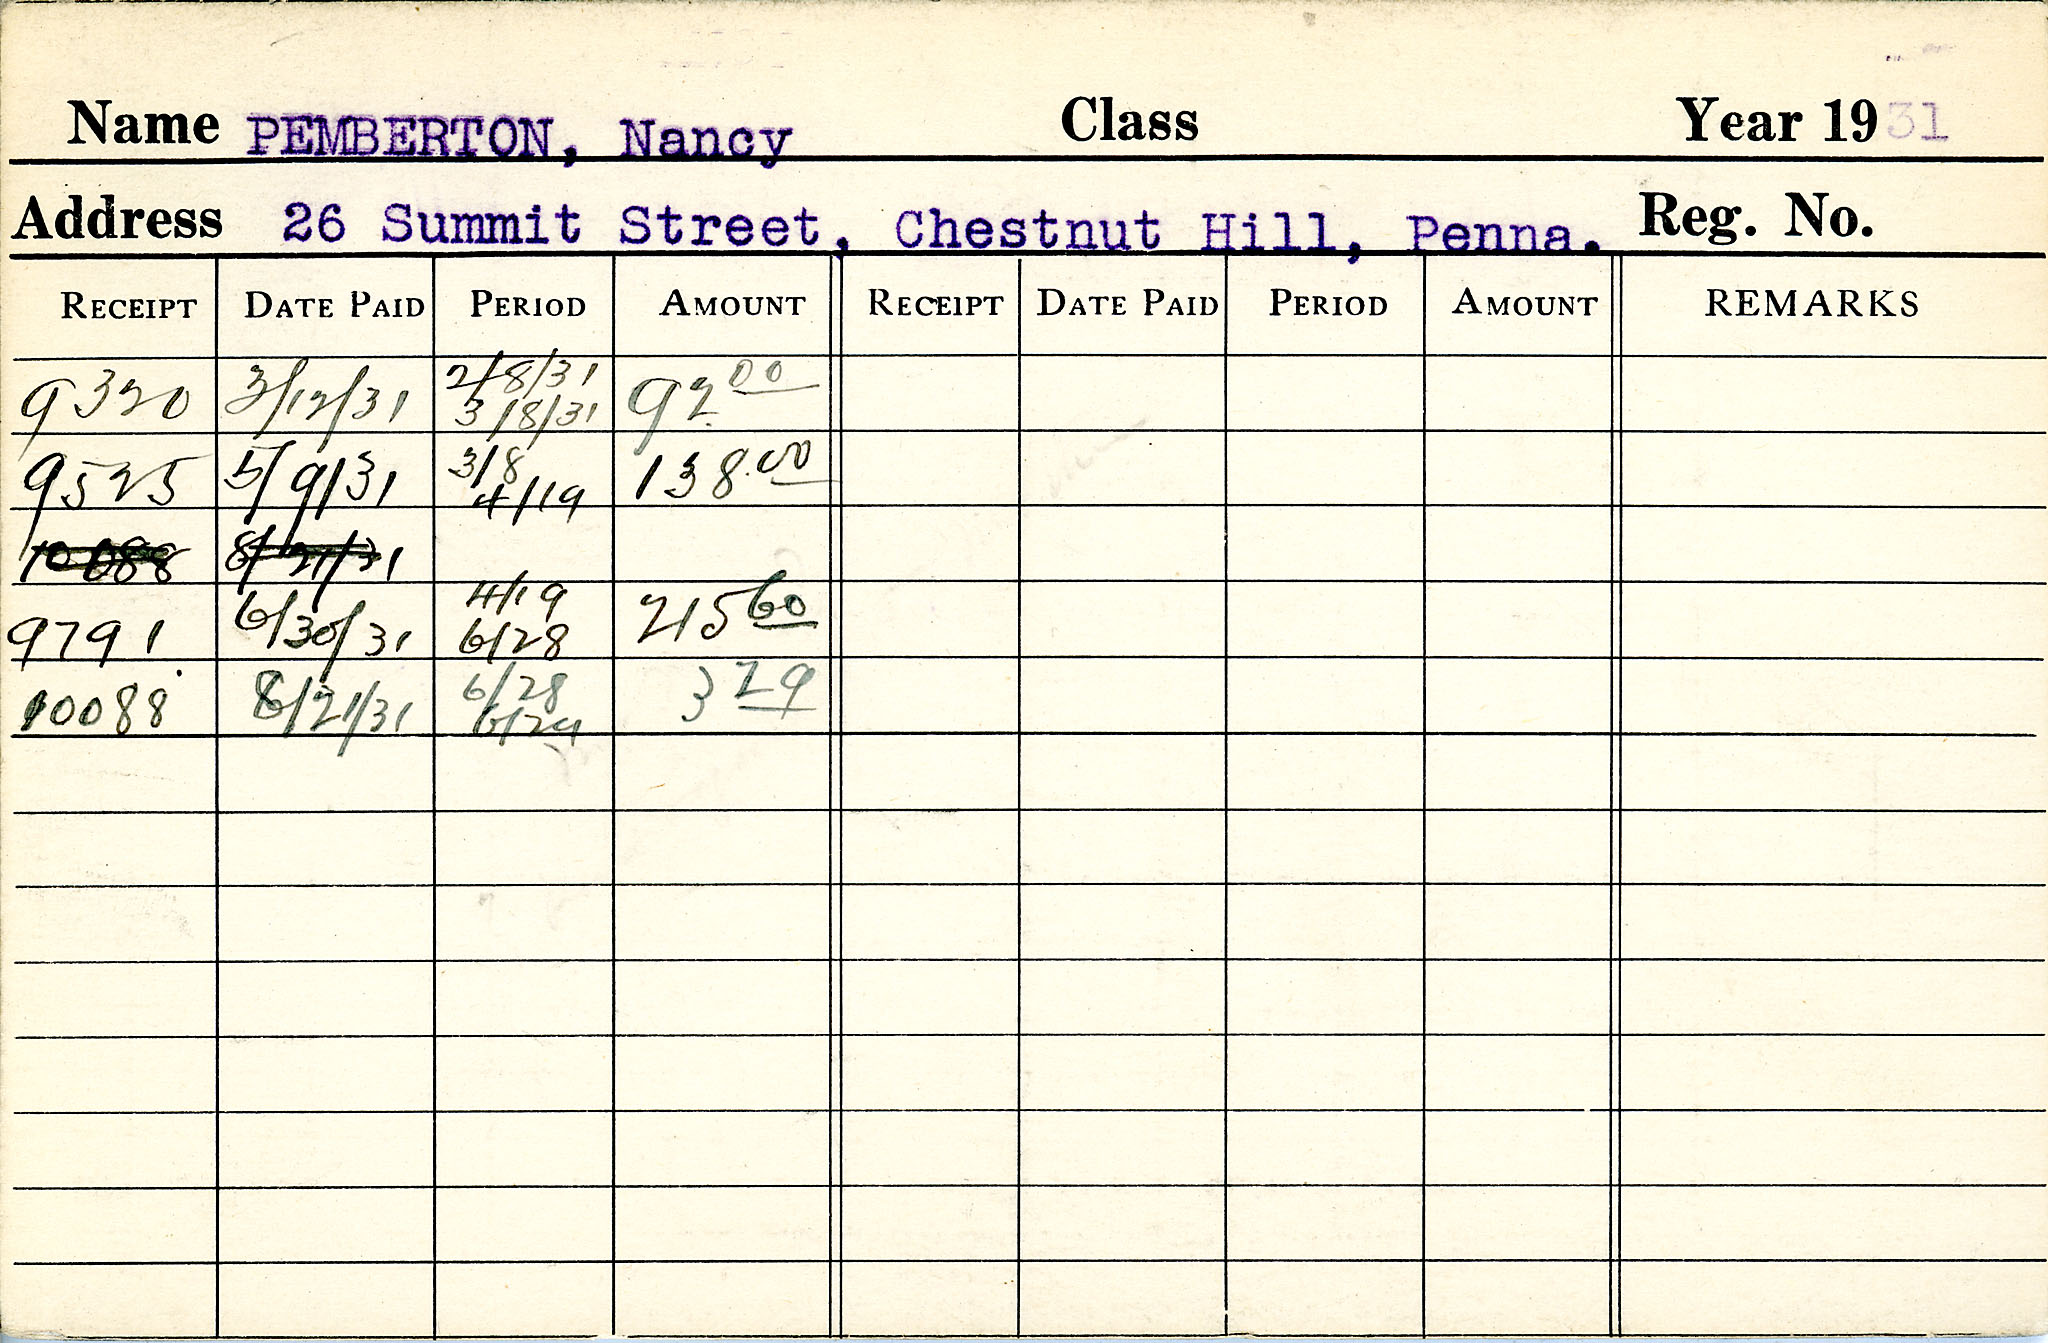 Name PEMBERTON, Nancy Class Year 1931
Address 26 Summit Street, Chestnut Hill, Penna. Reg. No.
RECEIPT DATE PAID PERIOD AMOUNT RECEIPT DATE PAID PERIOD AMOUNT REMARKS
9320 3/12/31 2/8/31 3/8/31 92.00
9525 5/9/31 3/8 4/19 138.00
10088 8/21/31
9791 6/30/31 4/19 6/28 215 60
10088 8/21/31 6/28 6/29 3 29